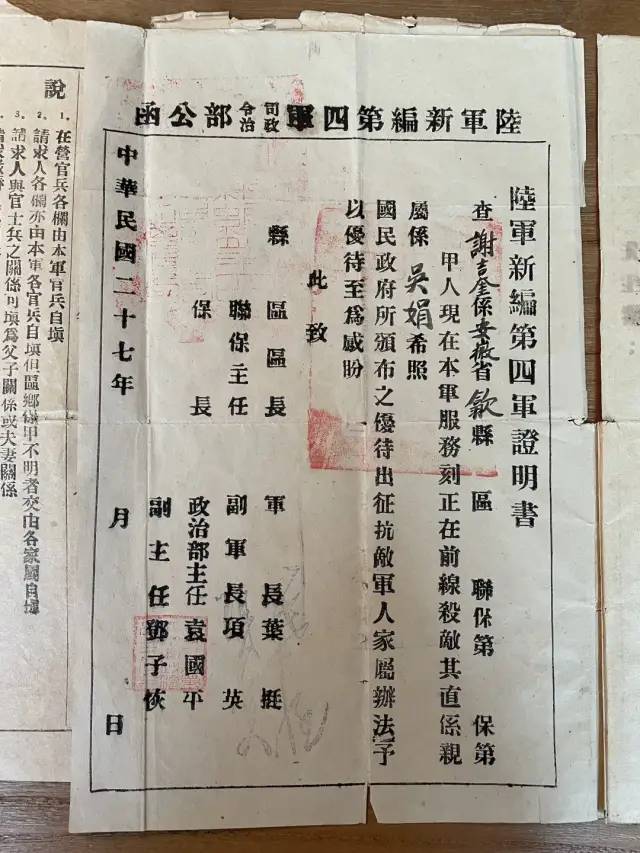 陸軍新編第四軍司令政治部公函
陸軍新編第四軍證明書
查謝吉奎係安徽省歙縣 區 聯保第 保第
甲人現在本軍服務刻正在前線殺敵其直係親
屬係吳娟希照
國民政府所頒布之優待出征抗敵軍人家屬辦法予
以優待至為感盼
此致
縣 區區長
聯保主任
保長
軍長葉挺
副軍長項英
政治部主任袁國平
副主任鄧子恢
中華民國二十七年 月 日
說
1.在營官兵各欄由本軍官兵自填
2.請求人各欄亦由本軍各官兵自填但區鄉保甲不明者交由各家屬自填
3.請求人與官士兵之關係可填為父子關係或夫妻關係